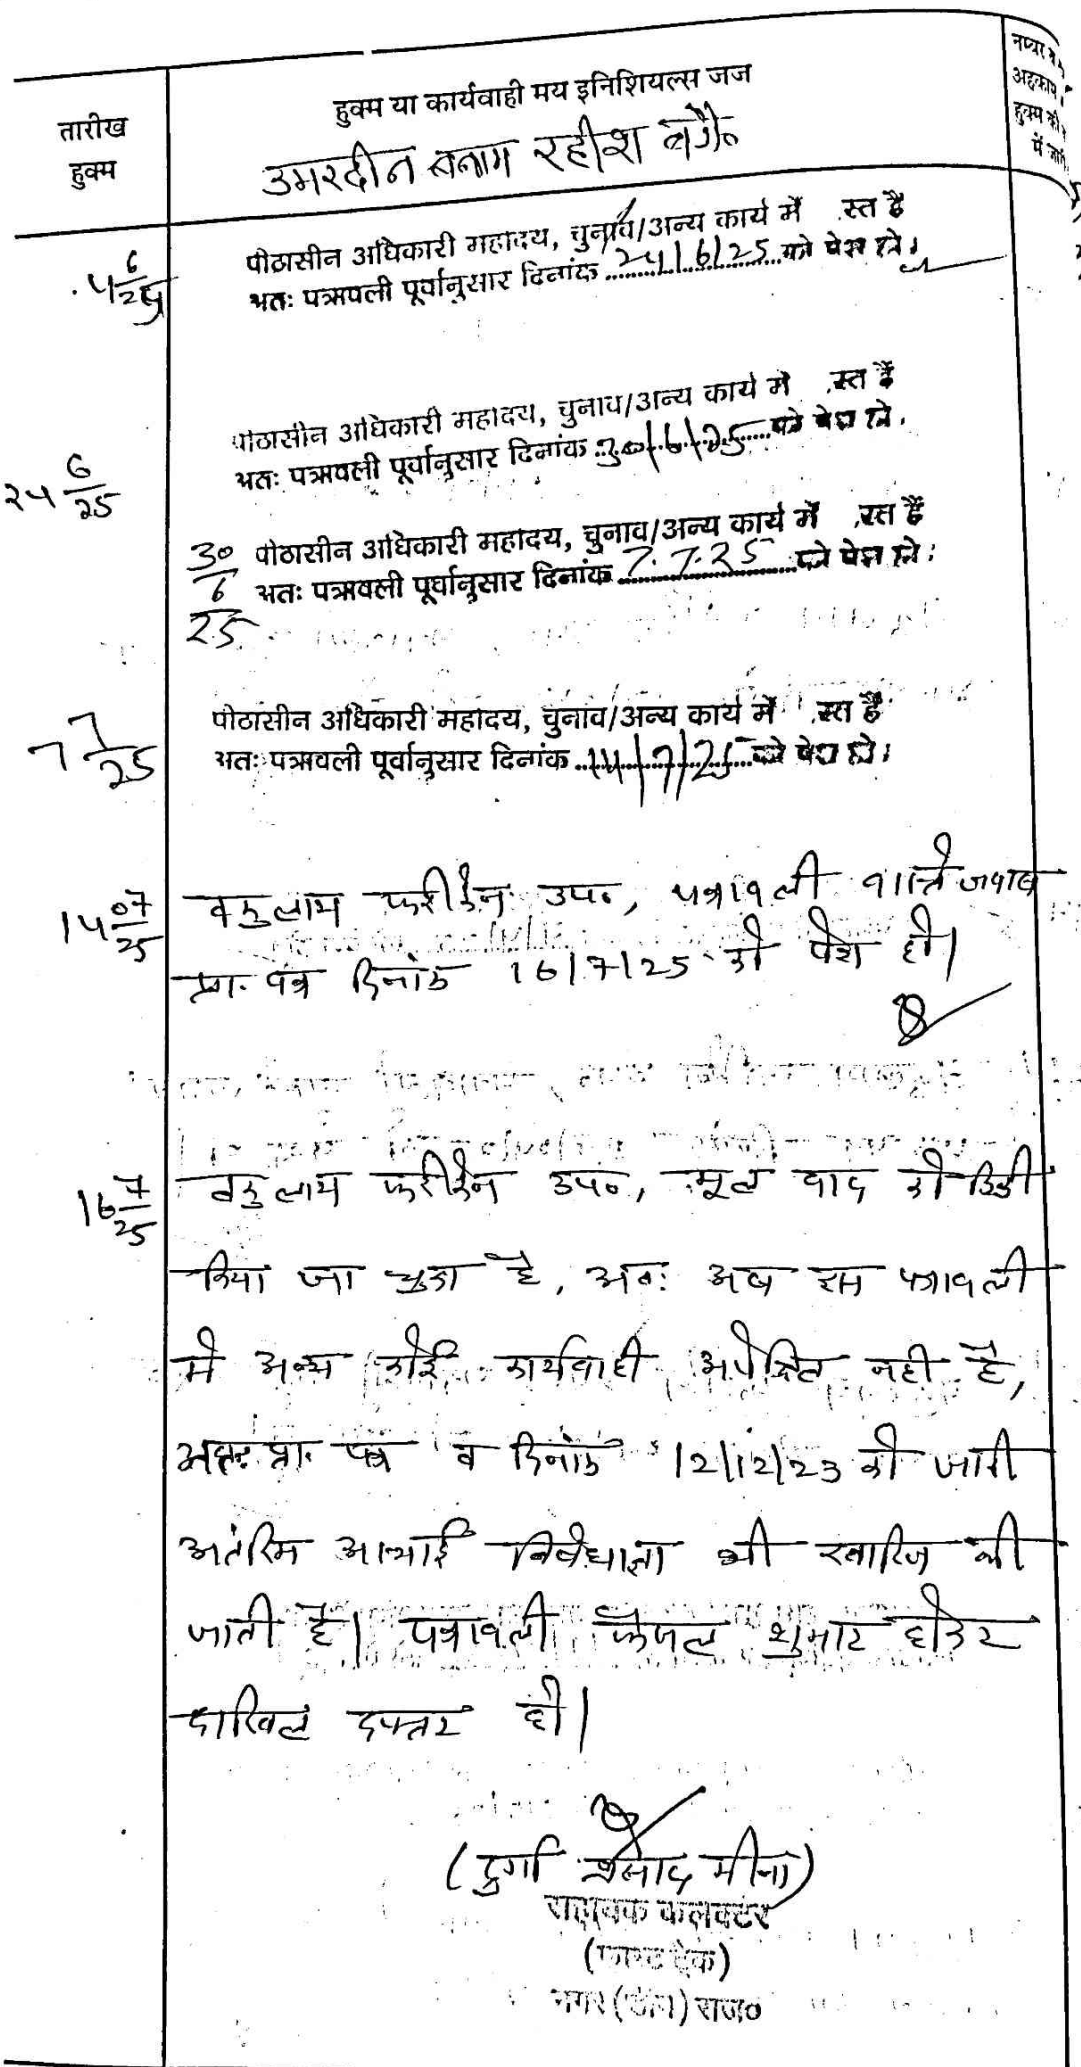 तारीख
हुक्म
हुक्म या कार्यवाही मय इनिशियल्स जज
उमरदीन बनाम रहीश वगै०
नम्बर व
अहकाम
हुक्म की
में जारी
4 6/25
पीठासीन अधिकारी महोदय, चुनाव/अन्य कार्य में .स्त है
अतः पत्रावली पूर्वानुसार दिनांक 24/6/25 को पेश हो।
24 6/25
पीठासीन अधिकारी महोदय, चुनाव/अन्य कार्य में .स्त है
अतः पत्रावली पूर्वानुसार दिनांक 30/6/25 को पेश हो.
30/6/25
पीठासीन अधिकारी महोदय, चुनाव/अन्य कार्य में .स्त है
अतः पत्रावली पूर्वानुसार दिनांक 7.7.25 को पेश हो.
7 7/25
पीठासीन अधिकारी महोदय, चुनाव/अन्य कार्य में .स्त है
अतः पत्रावली पूर्वानुसार दिनांक 14/7/25 को पेश हो।
14 07/25
वकुलाय फरीकेन उप०, पत्रावली वास्ते जवाब
प्रा. पत्र दिनांक 16/7/25 को पेश हो।
16 7/25
वकुलाय फरीकेन उप०, मूल वाद को डिक्री
किया जा चुका है, अतः अब इस पत्रावली
में अन्य कोई कार्यवाही अपेक्षित नहीं है,
अतः प्रा. पत्र व दिनांक 12/12/23 को जारी
अंतरिम अस्थाई निषेधाज्ञा भी खारिज की
जाती है। पत्रावली फैसल शुमार होकर
दाखिल दफ्तर हो।
(दुर्गा प्रसाद मीना)
सहायक कलक्टर
(फास्ट ट्रेक)
नगर (डीग) राज०